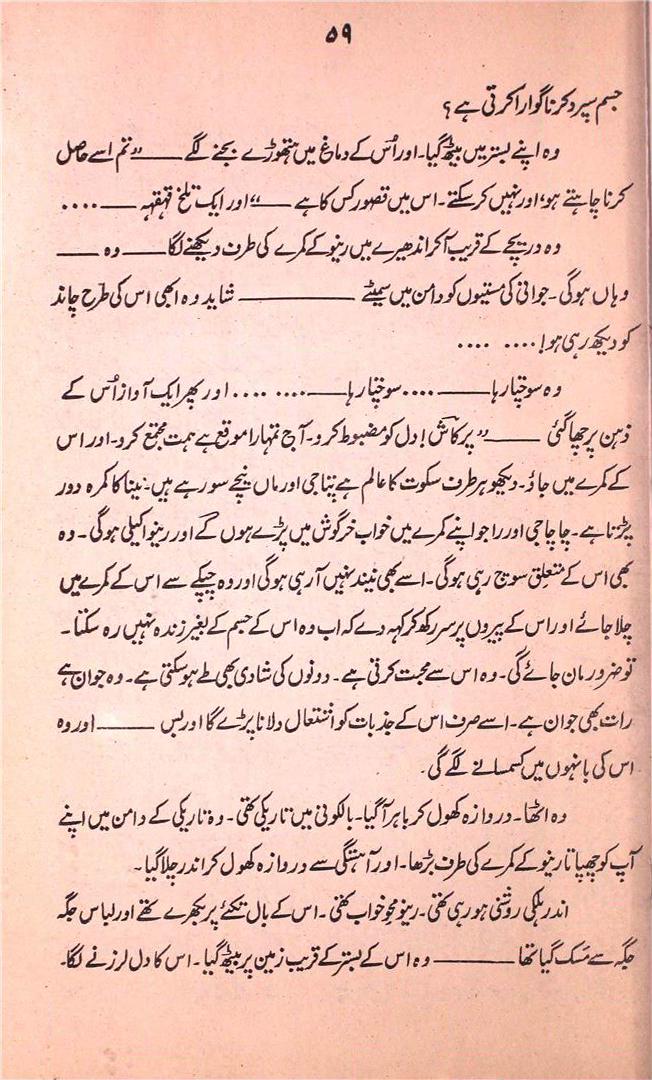 ۵۹
جسم سپرد کرنا گوارا کرتی ہے؟
وہ اپنے بستر میں بیٹھ گیا۔ اور اُس کے دماغ میں ہتھوڑے بجنے لگے ——— ”تم اسے حاصل
کرنا چاہتے ہو، اور نہیں کر سکتے۔ اس میں قصور کس کا ہے ——— “ اور ایک تلخ قہقہہ ——— ....
وہ دریچے کے قریب آ کر اندھیرے میں رینو کے کمرے کی طرف دیکھنے لگا ——— وہ ———
وہاں ہوگی۔ جوانی کی مستیوں کو دامن میں سمیٹے ——— شاید وہ ابھی اس کی طرح چاند
کو دیکھ رہی ہو! .... ....
وہ سوچتا رہا ——— .... سوچتا رہا ——— .... .... اور پھر ایک آواز اُس کے
ذہن پر چھا گئی ——— ”پرکاش! دل کو مضبوط کرو۔ آج تمہارا موقع ہے ہمت مجتمع کرو۔ اور اس
کے کمرے میں جاؤ۔ دیکھو ہر طرف سکوت کا عالم ہے پتا جی اور ماں نیچے سو رہے ہیں۔ نینا کا کمرہ دور
پڑتا ہے۔ چاچا جی اور راجو اپنے کمرے میں خواب خرگوش میں پڑے ہوں گے اور رینو اکیلی ہوگی۔ وہ
بھی اس کے متعلق سوچ رہی ہوگی۔ اسے بھی نیند نہیں آ رہی ہوگی اور وہ چپکے سے اس کے کمرے میں
چلا جائے اور اس کے پیروں پر سر رکھ کر کہہ دے کہ اب وہ اس کے جسم کے بغیر زندہ نہیں رہ سکتا۔
تو ضرور مان جائے گی۔ وہ اس سے محبت کرتی ہے۔ دونوں کی شادی بھی طے ہو سکتی ہے۔ وہ جوان ہے
رات بھی جوان ہے۔ اسے صرف اس کے جذبات کو اشتعال دلانا پڑے گا اور بس ——— اور وہ
اس کی بانہوں میں کسمسانے لگے گی۔
وہ اٹھا۔ دروازہ کھول کر باہر آ گیا۔ بالکونی میں تاریکی تھی۔ وہ تاریکی کے دامن میں اپنے
آپ کو چھپاتا رینو کے کمرے کی طرف بڑھا۔ اور آہستگی سے دروازہ کھول کر اندر چلا گیا۔
اندر ہلکی روشنی ہو رہی تھی۔ رینو محو خواب تھی۔ اس کے بال تکئے پر بکھرے تھے اور لباس جگہ
جگہ سے مَسک گیا تھا ——— وہ اس کے بستر کے قریب زمین پر بیٹھ گیا۔ اس کا دل لرزنے لگا۔